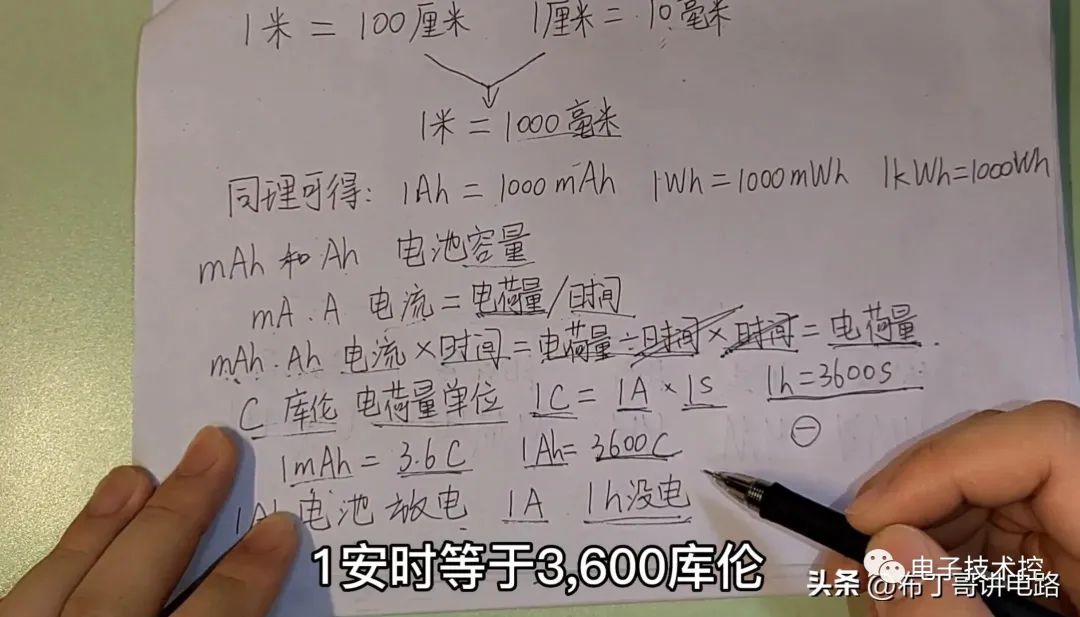 1米 = 100厘米 1厘米 = 10毫米
1米 = 1000毫米
同理可得: 1Ah = 1000mAh 1Wh = 1000mWh 1kWh=1000Wh
mAh 和 Ah 电池容量
mA . A 电流 = 电荷量/时间
mAh . Ah 电流×时间 = 电荷量÷时间×时间 = 电荷量.
C 库伦 电荷量单位 1C = 1A × 1S 1h=3600s
1mAh = 3.6C 1Ah= 3600C ⊖
电池放电 1A 1h没电
1安时等于3,600库伦
电子技术控
头条@布丁哥讲电路